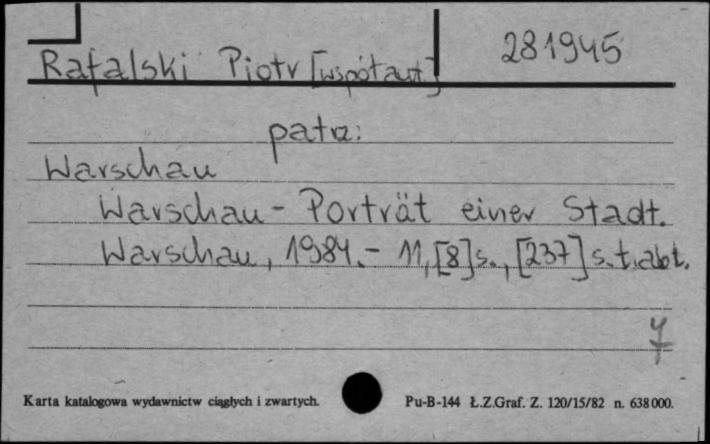 Rafalski Piotr [współaut.] 281945
patrz:
Warschau
Warschau - Porträt einer Stadt.
Warschau, 1984.- 11,[8]s.,[237]s.t.abl.
Karta katalogowa wydawnictw ciągłych i zwartych. Pu-B-144 Ł.Z.Graf. Z. 120/15/82 n. 638000.